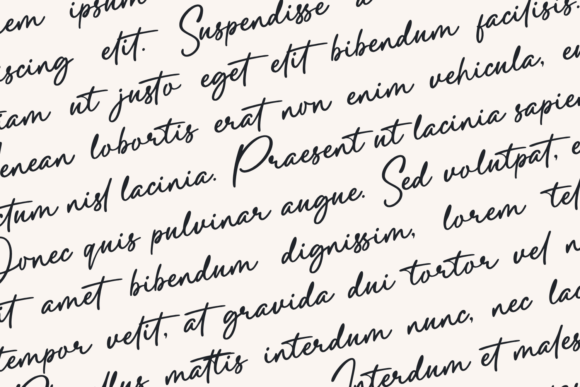 em ipsum
scing elit. Suspendisse a
iam ut justo eget elit bibendum facilisis.
enean lobortis erat non enim vehicula, eu
ctum nisl lacinia. Praesent ut lacinia sapien
Donec quis pulvinar augue. Sed volutpat, e
it amet bibendum dignissim, lorem tel
tempor velit, at gravida dui tortor vel n
llus mattis interdum nunc, nec lac
Interdum et males